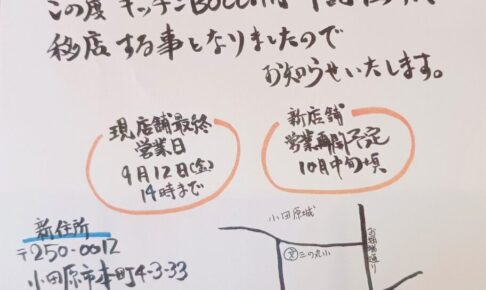 この度 キッチン
移店する事となりましたので
お知らせいたします。
現店舗最終
営業日
9月12日(金)
14時まで
新店舗
営業再開予定
10月中旬頃
新住所
〒250-0012
小田原市本町4-3-33
小田原城
文 三の丸小
お堀端通り